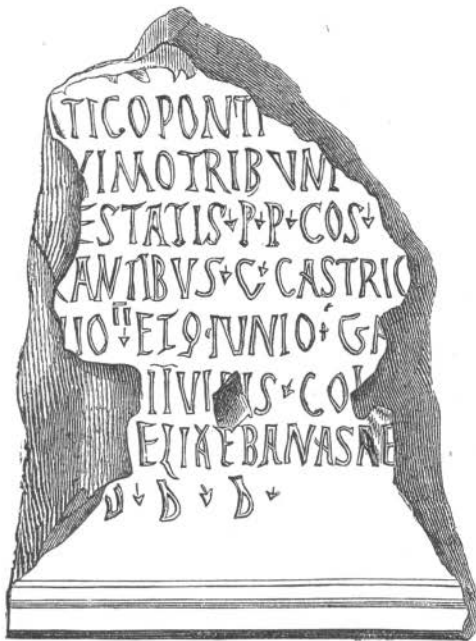 TICOPONTI
XIMOTRIBVNI
ESTATIS·P·P·COS·
RANTIBVS·C·CASTRIC
IIO ET Q·IVNIO·GA
IIVI IS·COL
ELIXEBANASAE
D·D·